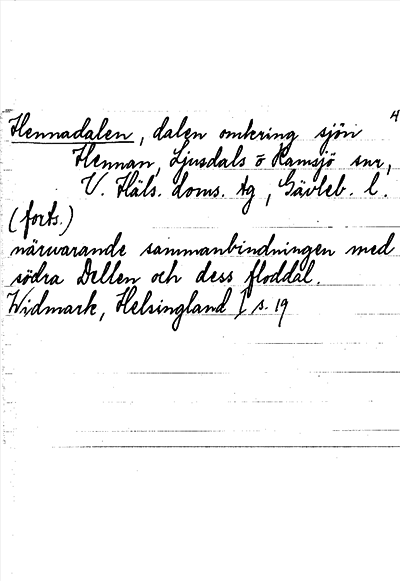 4
Hennadalen, dalen omkring sjön
Hennan, Ljusdals o Ramsjö snr,
V. Häls. doms. tg, Gävleb. l.
(forts.)
närvarande sammanbindningen med
södra Dellen och dess floddal.
Widmark, Helsingland I s. 19